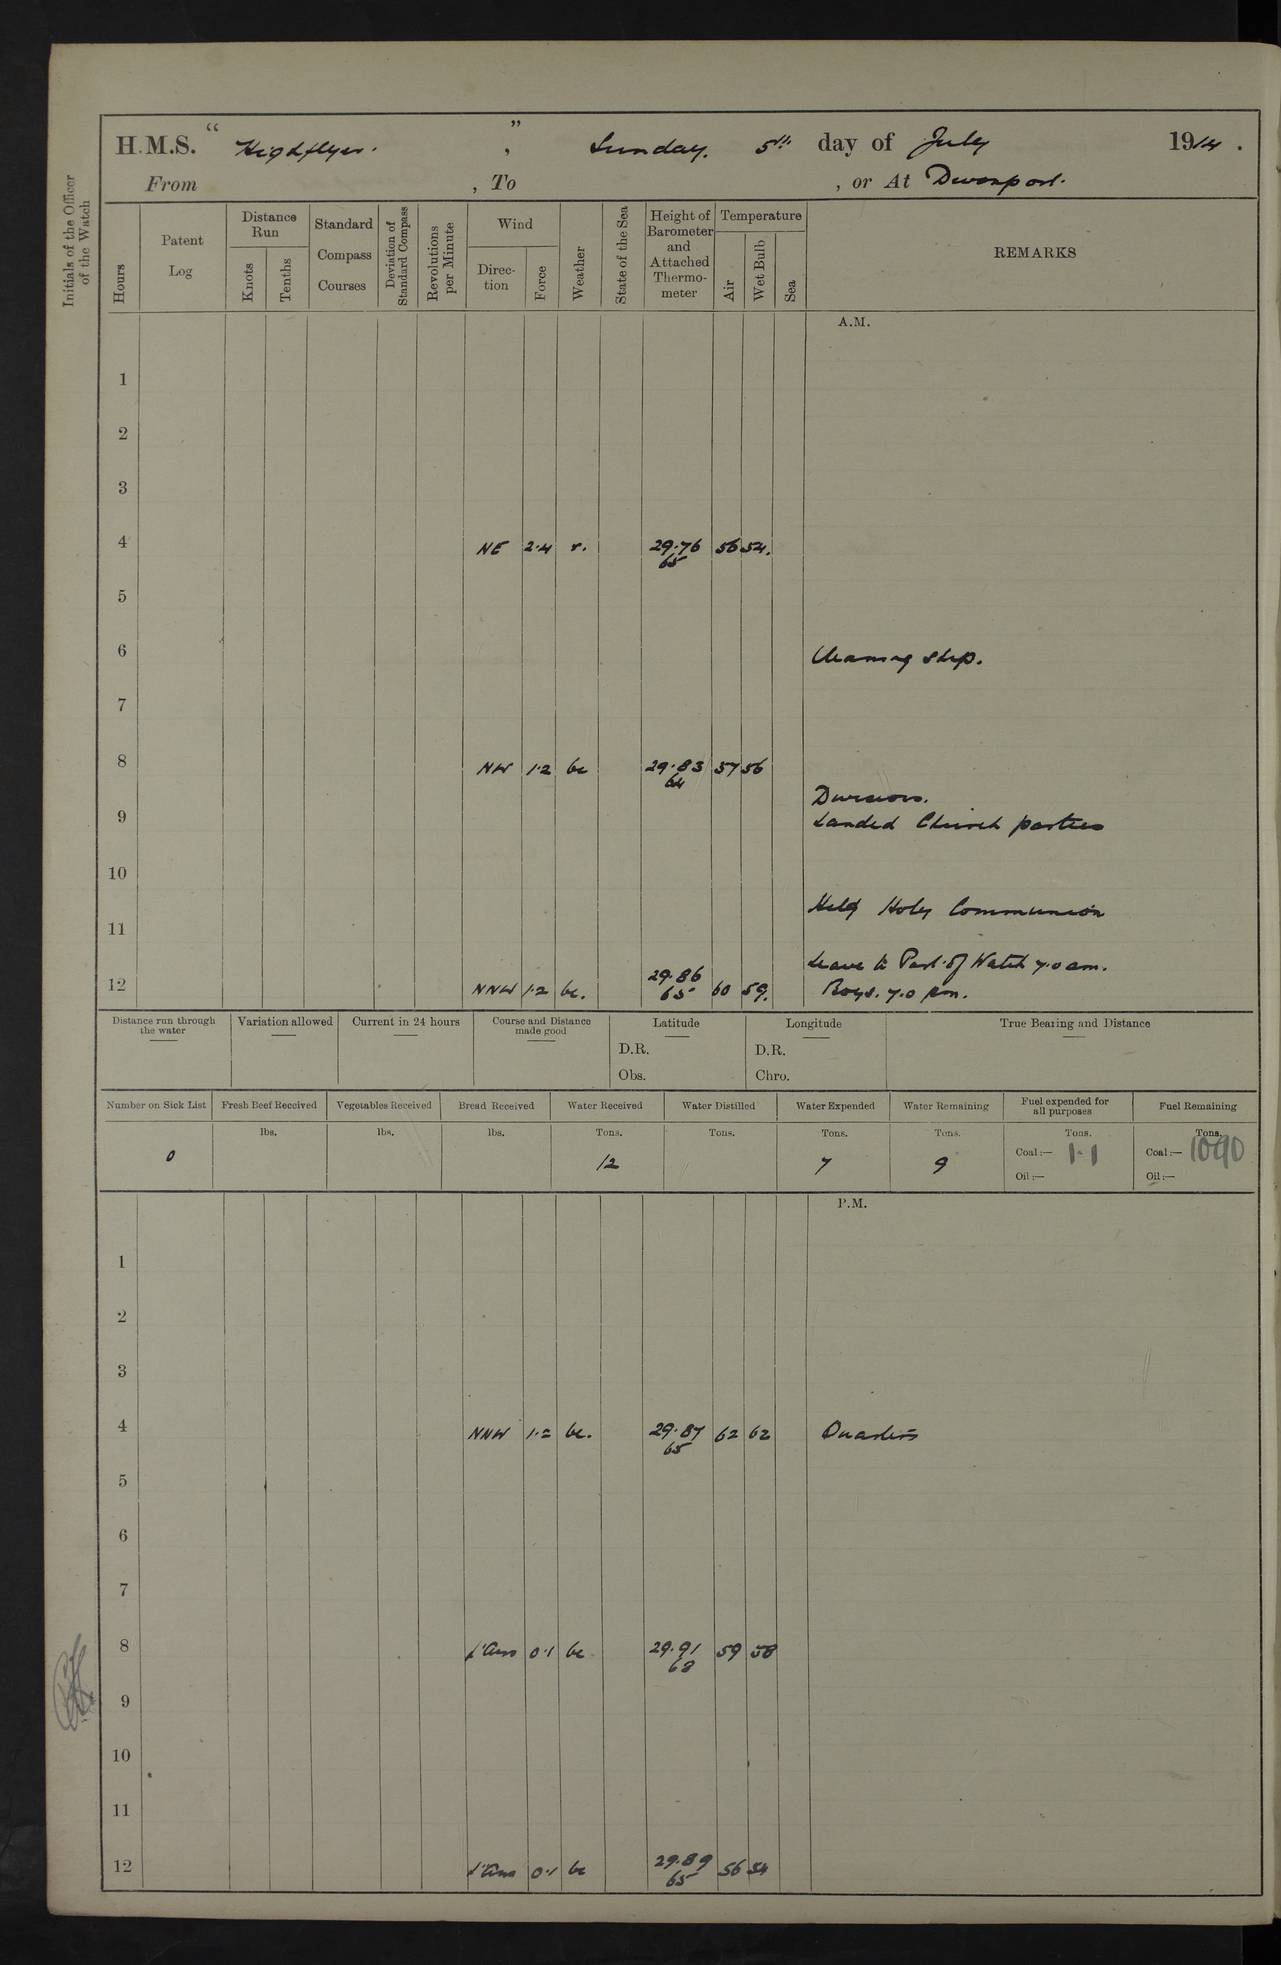 H.M.S. " Highflyer. ", Sunday. 5th day of July 1914.
From , To , or At Devonport.
Initials of the Officer of the Watch
Hours
Patent Log
Distance Run
Knots
Tenths
Standard Compass Courses
Deviation of Standard Compass
Revolutions per Minute
Wind
Direction
Force
Weather
State of the Sea
Height of Barometer and Attached Thermometer
Temperature
Air
Wet Bulb
Sea
REMARKS
A.M.
1
2
3
4 NE 2·4 r. 29·76 56 54.
65
5
6 Cleaning ship.
7
8 NW 1·2 bc 29·83 57 56
64
Divisions.
9 Landed Church parties
10
Held Holy Communion
11
Leave to Part of Watch 7.0 am.
29·86
12 NNW 1·2 bc. 65 60 59. Boys. 7.0 pm.
Distance run through the water
Variation allowed
Current in 24 hours
Course and Distance made good
Latitude
D.R.
Obs.
Longitude
D.R.
Chro.
True Bearing and Distance
Number on Sick List Fresh Beef Received Vegetables Received Bread Received Water Received Water Distilled Water Expended Water Remaining Fuel expended for all purposes Fuel Remaining
lbs. lbs. lbs. Tons. Tons. Tons. Tons. Tons. Tons.
0 12 7 9 Coal:— 1·1 Coal:— 1090
Oil:— Oil:—
P.M.
1
2
3
4 NNW 1·2 bc. 29·87 62 62 Quarters
65
5
6
7
8 L'Airs 0·1 bc 29·91 59 58
68
9
10
11
12 L'Airs 0·1 bc 29·89 56 54
65